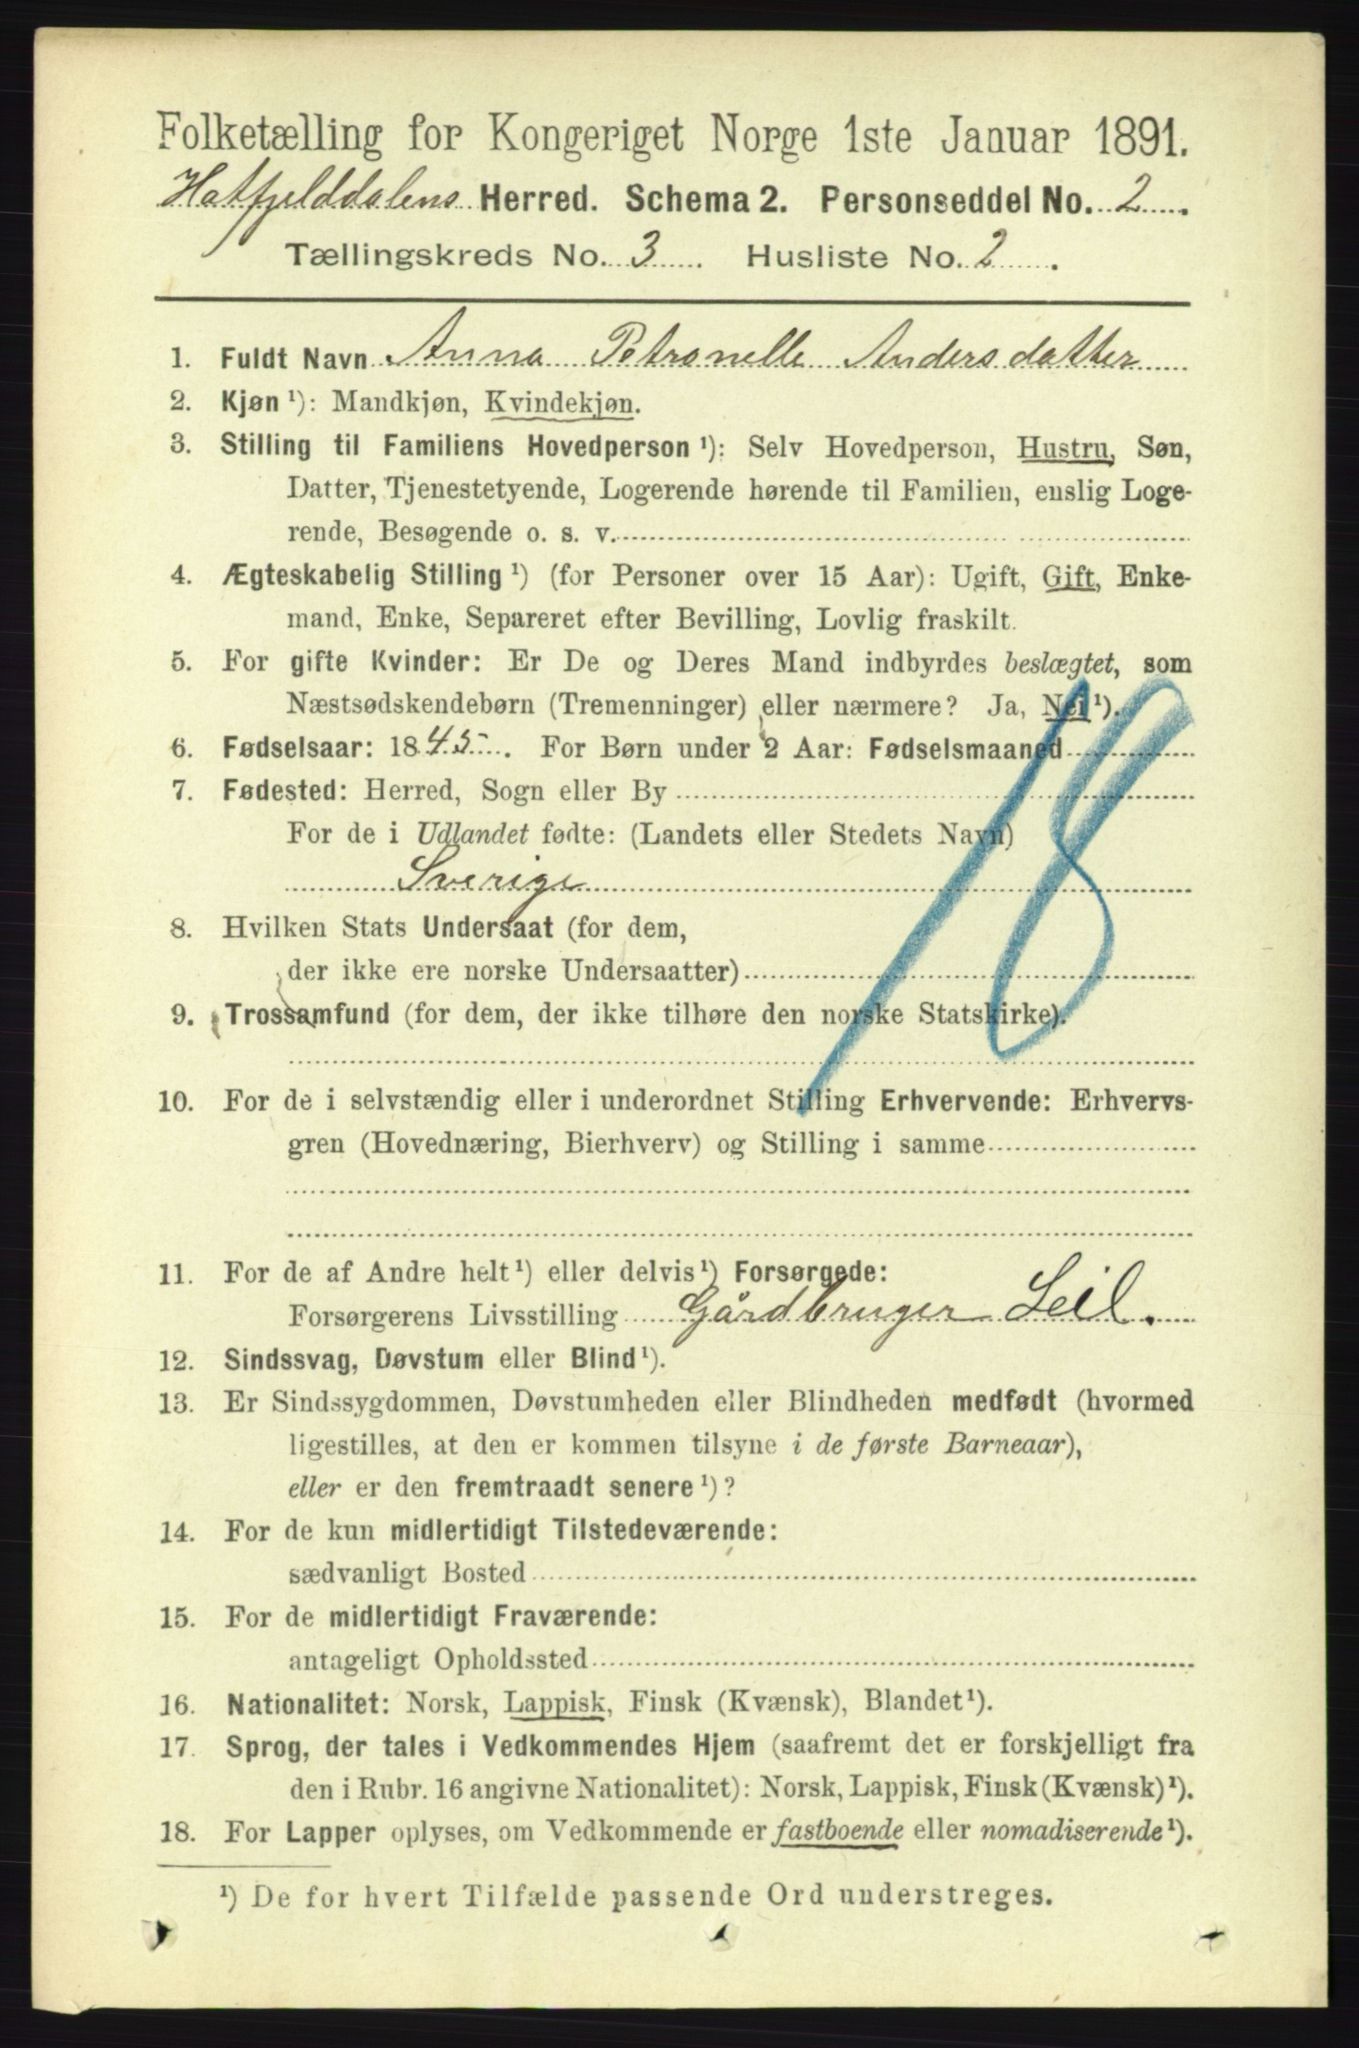 Folketælling for Kongeriget Norge 1ste Januar 1891.
Hatfjelddalens Herred. Schema 2. Personseddel No. 2
Tællingskreds No. 3 Husliste No. 2
1. Fuldt Navn Anna Petronelle Andersdatter
2. Kjøn ¹): Mandkjøn, Kvindekjøn.
3. Stilling til Familiens Hovedperson ¹): Selv Hovedperson, Hustru, Søn,
Datter, Tjenestetyende, Logerende hørende til Familien, enslig Loge-
rende, Besøgende o. s. v.
4. Ægteskabelig Stilling ¹) (for Personer over 15 Aar): Ugift, Gift, Enke-
mand, Enke, Separeret efter Bevilling, Lovlig fraskilt.
5. For gifte Kvinder: Er De og Deres Mand indbyrdes beslægtet, som
Næstsødskendebørn (Tremenninger) eller nærmere? Ja, Nei ¹).
6. Fødselsaar: 1845. For Børn under 2 Aar: Fødselsmaaned
7. Fødested: Herred, Sogn eller By
For de i Udlandet fødte: (Landets eller Stedets Navn)
Sverige
8. Hvilken Stats Undersaat (for dem,
der ikke ere norske Undersaatter)
9. Trossamfund (for dem, der ikke tilhøre den norske Statskirke).
18
10. For de i selvstændig eller i underordnet Stilling Erhvervende: Erhvervs-
gren (Hovednæring, Bierhverv) og Stilling i samme
11. For de af Andre helt ¹) eller delvis ¹) Forsørgede:
Forsørgerens Livsstilling Gårdbruger Leil.
12. Sindssvag, Døvstum eller Blind ¹).
13. Er Sindssygdommen, Døvstumheden eller Blindheden medfødt (hvormed
ligestilles, at den er kommen tilsyne i de første Barneaar),
eller er den fremtraadt senere ¹)?
14. For de kun midlertidigt Tilstedeværende:
sædvanligt Bosted
15. For de midlertidigt Fraværende:
antageligt Opholdssted
16. Nationalitet: Norsk, Lappisk, Finsk (Kvænsk), Blandet ¹).
17. Sprog, der tales i Vedkommendes Hjem (saafremt det er forskjelligt fra
den i Rubr. 16 angivne Nationalitet): Norsk, Lappisk, Finsk (Kvænsk) ¹).
18. For Lapper oplyses, om Vedkommende er fastboende eller nomadiserende ¹).
¹) De for hvert Tilfælde passende Ord understreges.